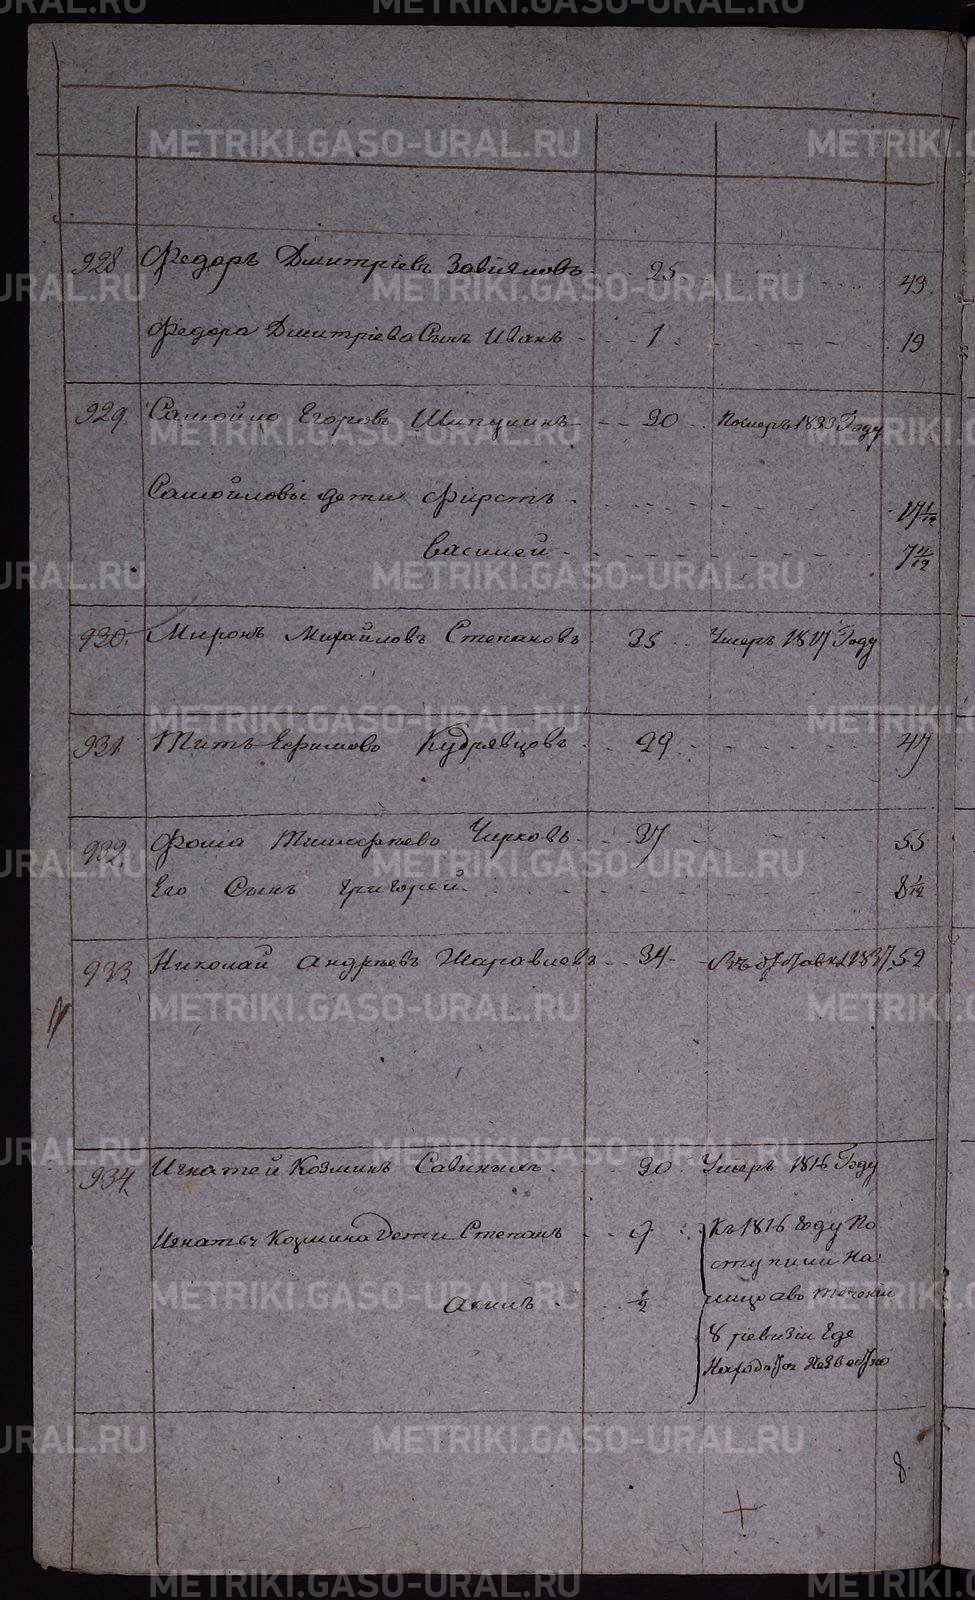 METRIKI.GASO-URAL.RU
928 Федоръ Дмитріевъ Завіяловъ 25 43
Федора Дмитріева Сынъ Иванъ 1 19
929 Самойло Егоровъ Шипулинъ 30 Померъ 1833 Году
Самойловы дети Фирстъ 17 1/12
Василей
930 Миронъ Михайловъ Степановъ 35 Умеръ 1817 Году
931 Титъ Ефимово Кудрявцовъ 29 47
932 Фома Тимофеево Чирковъ 37 55
Его Сынъ Григорей
933 Николай Андреевъ 34 1837 52
934 Игнатей Козминъ Савиныхъ 30 Умеръ 1816 Году
Игнатья Козмина Дети Степанъ 9 Къ 1816 Году По
ступили На
Асипъ 1/2
8 ревизіи Где
Находятся Неизвестно
8